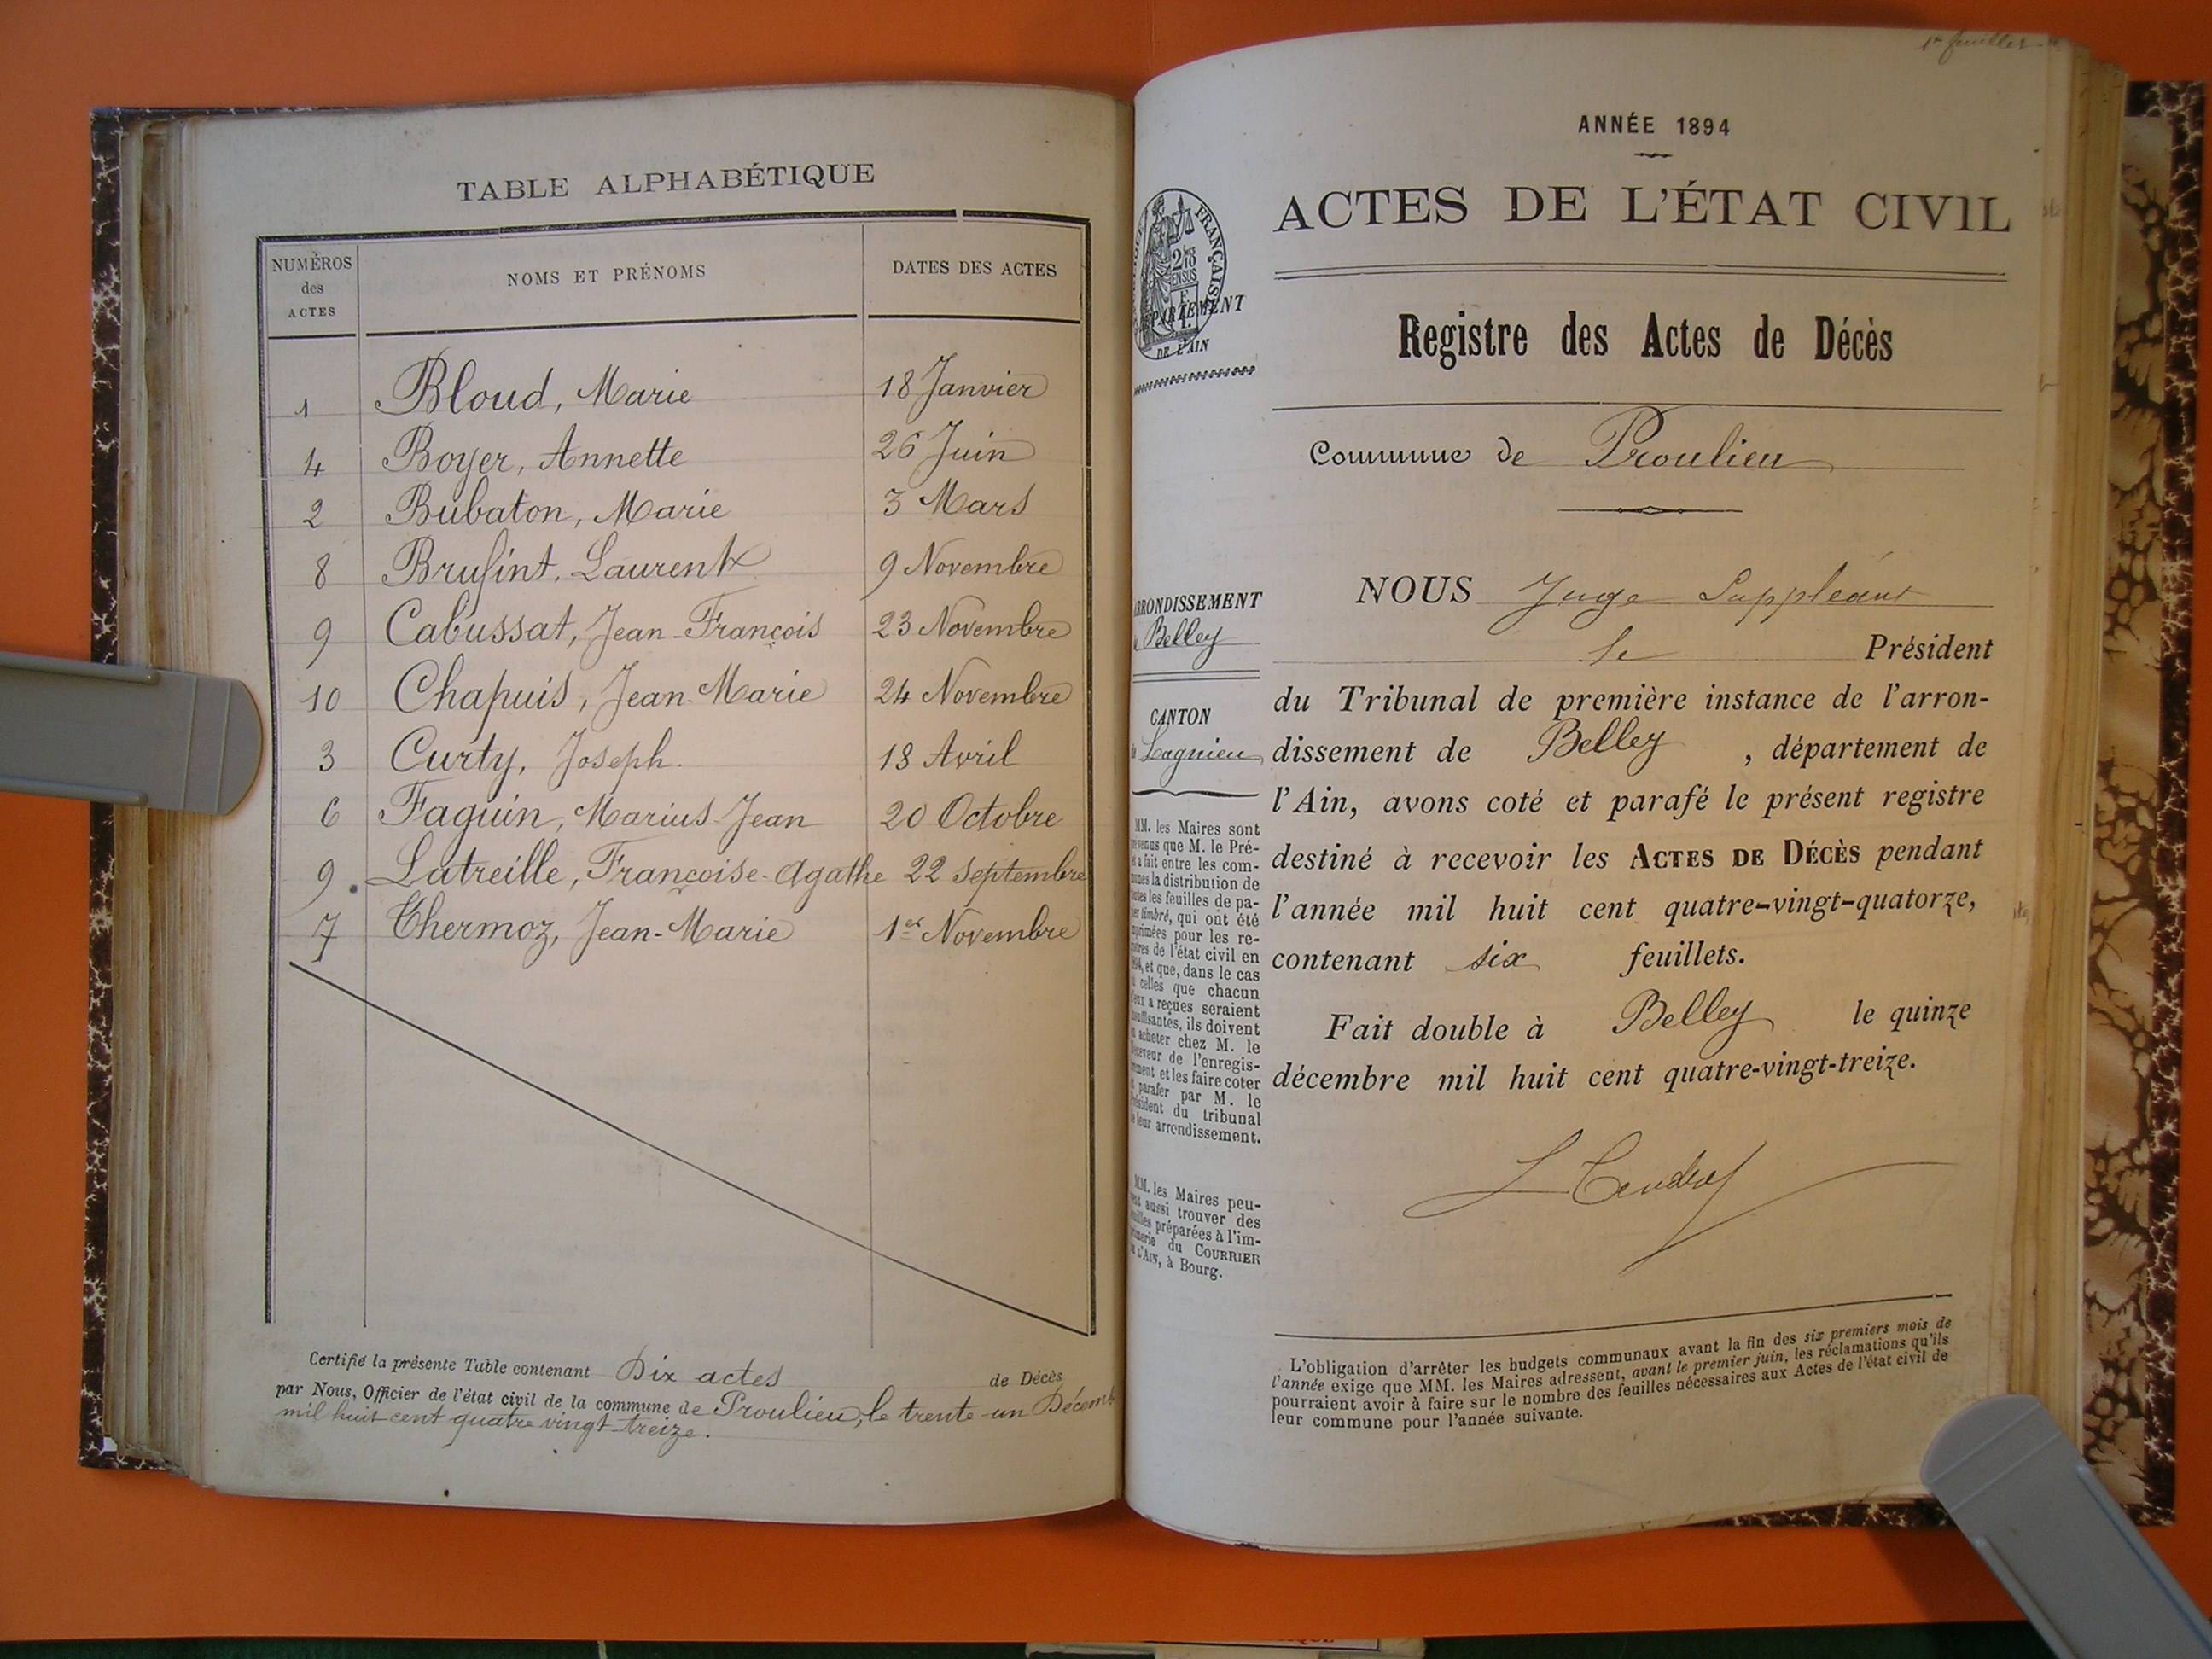 TABLE ALPHABÉTIQUE
NUMÉROS des ACTES
NOMS ET PRÉNOMS
DATES DES ACTES
1 Bloud, Marie 18 Janvier
4 Boyer, Annette 26 Juin
2 Bubaton, Marie 3 Mars
8 Brusint, Laurent 9 Novembre
9 Cabussat, Jean-François 23 Novembre
10 Chapuis, Jean-Marie 24 Novembre
3 Curty, Joseph. 18 Avril
6 Faguin, Marius-Jean 20 Octobre
9. Latreille, Françoise-Agathe 22 Septembre
7 Thermoz, Jean-Marie 1er Novembre
Certifié la présente Table contenant Dix actes de Décès
par Nous, Officier de l'état civil de la commune de Proulieu, le trente-un Décemb
mil huit cent quatre vingt treize.
1er feuillet
ANNÉE 1894
ACTES DE L'ÉTAT CIVIL
FRANÇAISE
2/10 EN SUS
DÉPARTEMENT
DE L'AIN
Registre des Actes de Décès
Commune de Proulieu
ARRONDISSEMENT
Belley
CANTON
Lagnieu
NOUS Juge Suppléant
le Président
du Tribunal de première instance de l'arron-
dissement de Belley, département de
l'Ain, avons coté et parafé le présent registre
destiné à recevoir les ACTES DE DÉCÈS pendant
l'année mil huit cent quatre-vingt-quatorze,
contenant six feuillets.
Fait double à Belley le quinze
décembre mil huit cent quatre-vingt-treize.
MM. les Maires sont
prévenus que M. le Pré-
et a fait entre les com-
munes la distribution de
toutes les feuilles de pa-
pier timbré, qui ont été
imprimées pour les re-
gistres de l'état civil en
1894, et que, dans le cas
où celles que chacun
d'eux a reçues seraient
insuffisantes, ils doivent
en acheter chez M. le
Receveur de l'enregis-
trement et les faire coter
et parafer par M. le
Président du tribunal
de leur arrondissement.
MM. les Maires peu-
vent aussi trouver des
feuilles préparées à l'im-
primerie du COURRIER
DE L'AIN, à Bourg.
L'obligation d'arrêter les budgets communaux avant la fin des six premiers mois de
l'année exige que MM. les Maires adressent, avant le premier juin, les réclamations qu'ils
pourraient avoir à faire sur le nombre des feuilles nécessaires aux Actes de l'état civil de
leur commune pour l'année suivante.